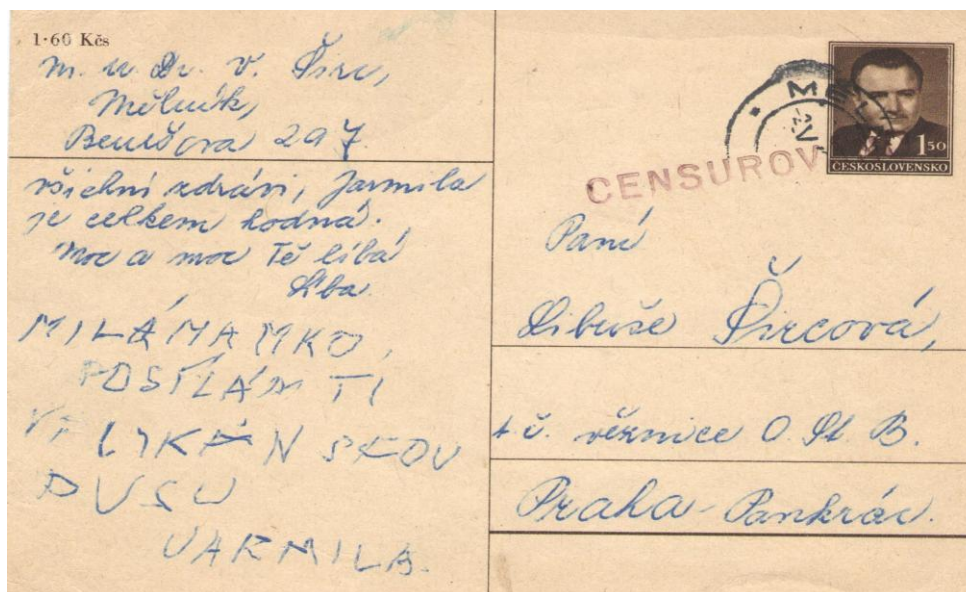 1·60 Kčs
M. u Dr. V. Širc,
Mělník,
Benešova 297.
všichni zdrávi, Jarmila
je celkem hodná.
Moc a moc Tě líbá
MILÁ MAMKO,
POSÍLÁM TI
VELIKÁNSKOU
PUSU
JARMILA.
MĚL
CENSUROV
1 50
ČESKOSLOVENSKO
Paní
Libuše Šircová,
t. č. věznice O. St. B.
Praha-Pankrác.